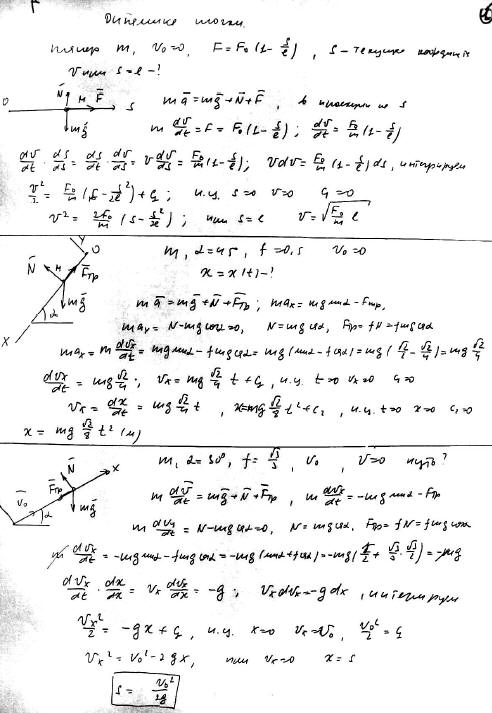 Динамика точки.
m, v₀=0, F=F₀(1-s/l), s-текущая координата
v при s=l -?
N̄ M F̄
O S
mḡ
mā=mḡ+N̄+F̄, в проекции на s
m dv/dt = F = F₀(1-s/l); dv/dt = F₀/m (1-s/l)
dv/dt · ds/ds = ds/dt · dv/ds = v dv/ds = F₀/m (1-s/l); vdv = F₀/m (1-s/l) ds, интегрируем
v²/2 = F₀/m (s-s²/2l)+C₁; н.у. s=0 v=0 C₁=0
v² = 2F₀/m (s-s²/2l); при s=l v=√(F₀/m l)
m, α=45, f=0.5 v₀=0
x=x(t)-?
Y O
N̄ M F̄тр
mḡ
X α
mā=mḡ+N̄+F̄тр; maₓ=mg sinα-Fтр,
maᵧ=N-mg cosα=0, N=mg cosα, Fтр=fN=fmg cosα
maₓ=m dvₓ/dt = mg sinα-fmg cosα=mg(sinα-fcosα)=mg(√2/2-√2/4)=mg √2/4
dvₓ/dt = mg √2/4; vₓ=mg √2/4 t+C₁, н.у. t=0 vₓ=0 C₁=0
vₓ = dx/dt = mg √2/4 t, x=mg √2/8 t²+C₂, н.у. t=0 x=0 C₂=0
x = mg √2/8 t² (м)
m, α=30°, f=√3/3, v₀, v=0 путь?
N̄ X
F̄тр
v̄₀ mḡ
α
m dv̄/dt = mḡ+N̄+F̄тр, m dvₓ/dt = -mg sinα-Fтр
m dvᵧ/dt = N-mg cosα=0, N=mg cosα, Fтр=fN=fmg cosα
m dvₓ/dt = -mg sinα-fmg cosα=-mg(sinα+fcosα)=-mg(1/2+√3/3·√3/2)=-mg
dvₓ/dt · dx/dx = vₓ dvₓ/dx = -g; vₓdvₓ=-gdx, интегрируем
vₓ²/2 = -gx+C₁, н.у. x=0 vₓ=v₀, v₀²/2=C₁
vₓ²=v₀²-2gx, при vₓ=0 x=s
s = v₀²/2g